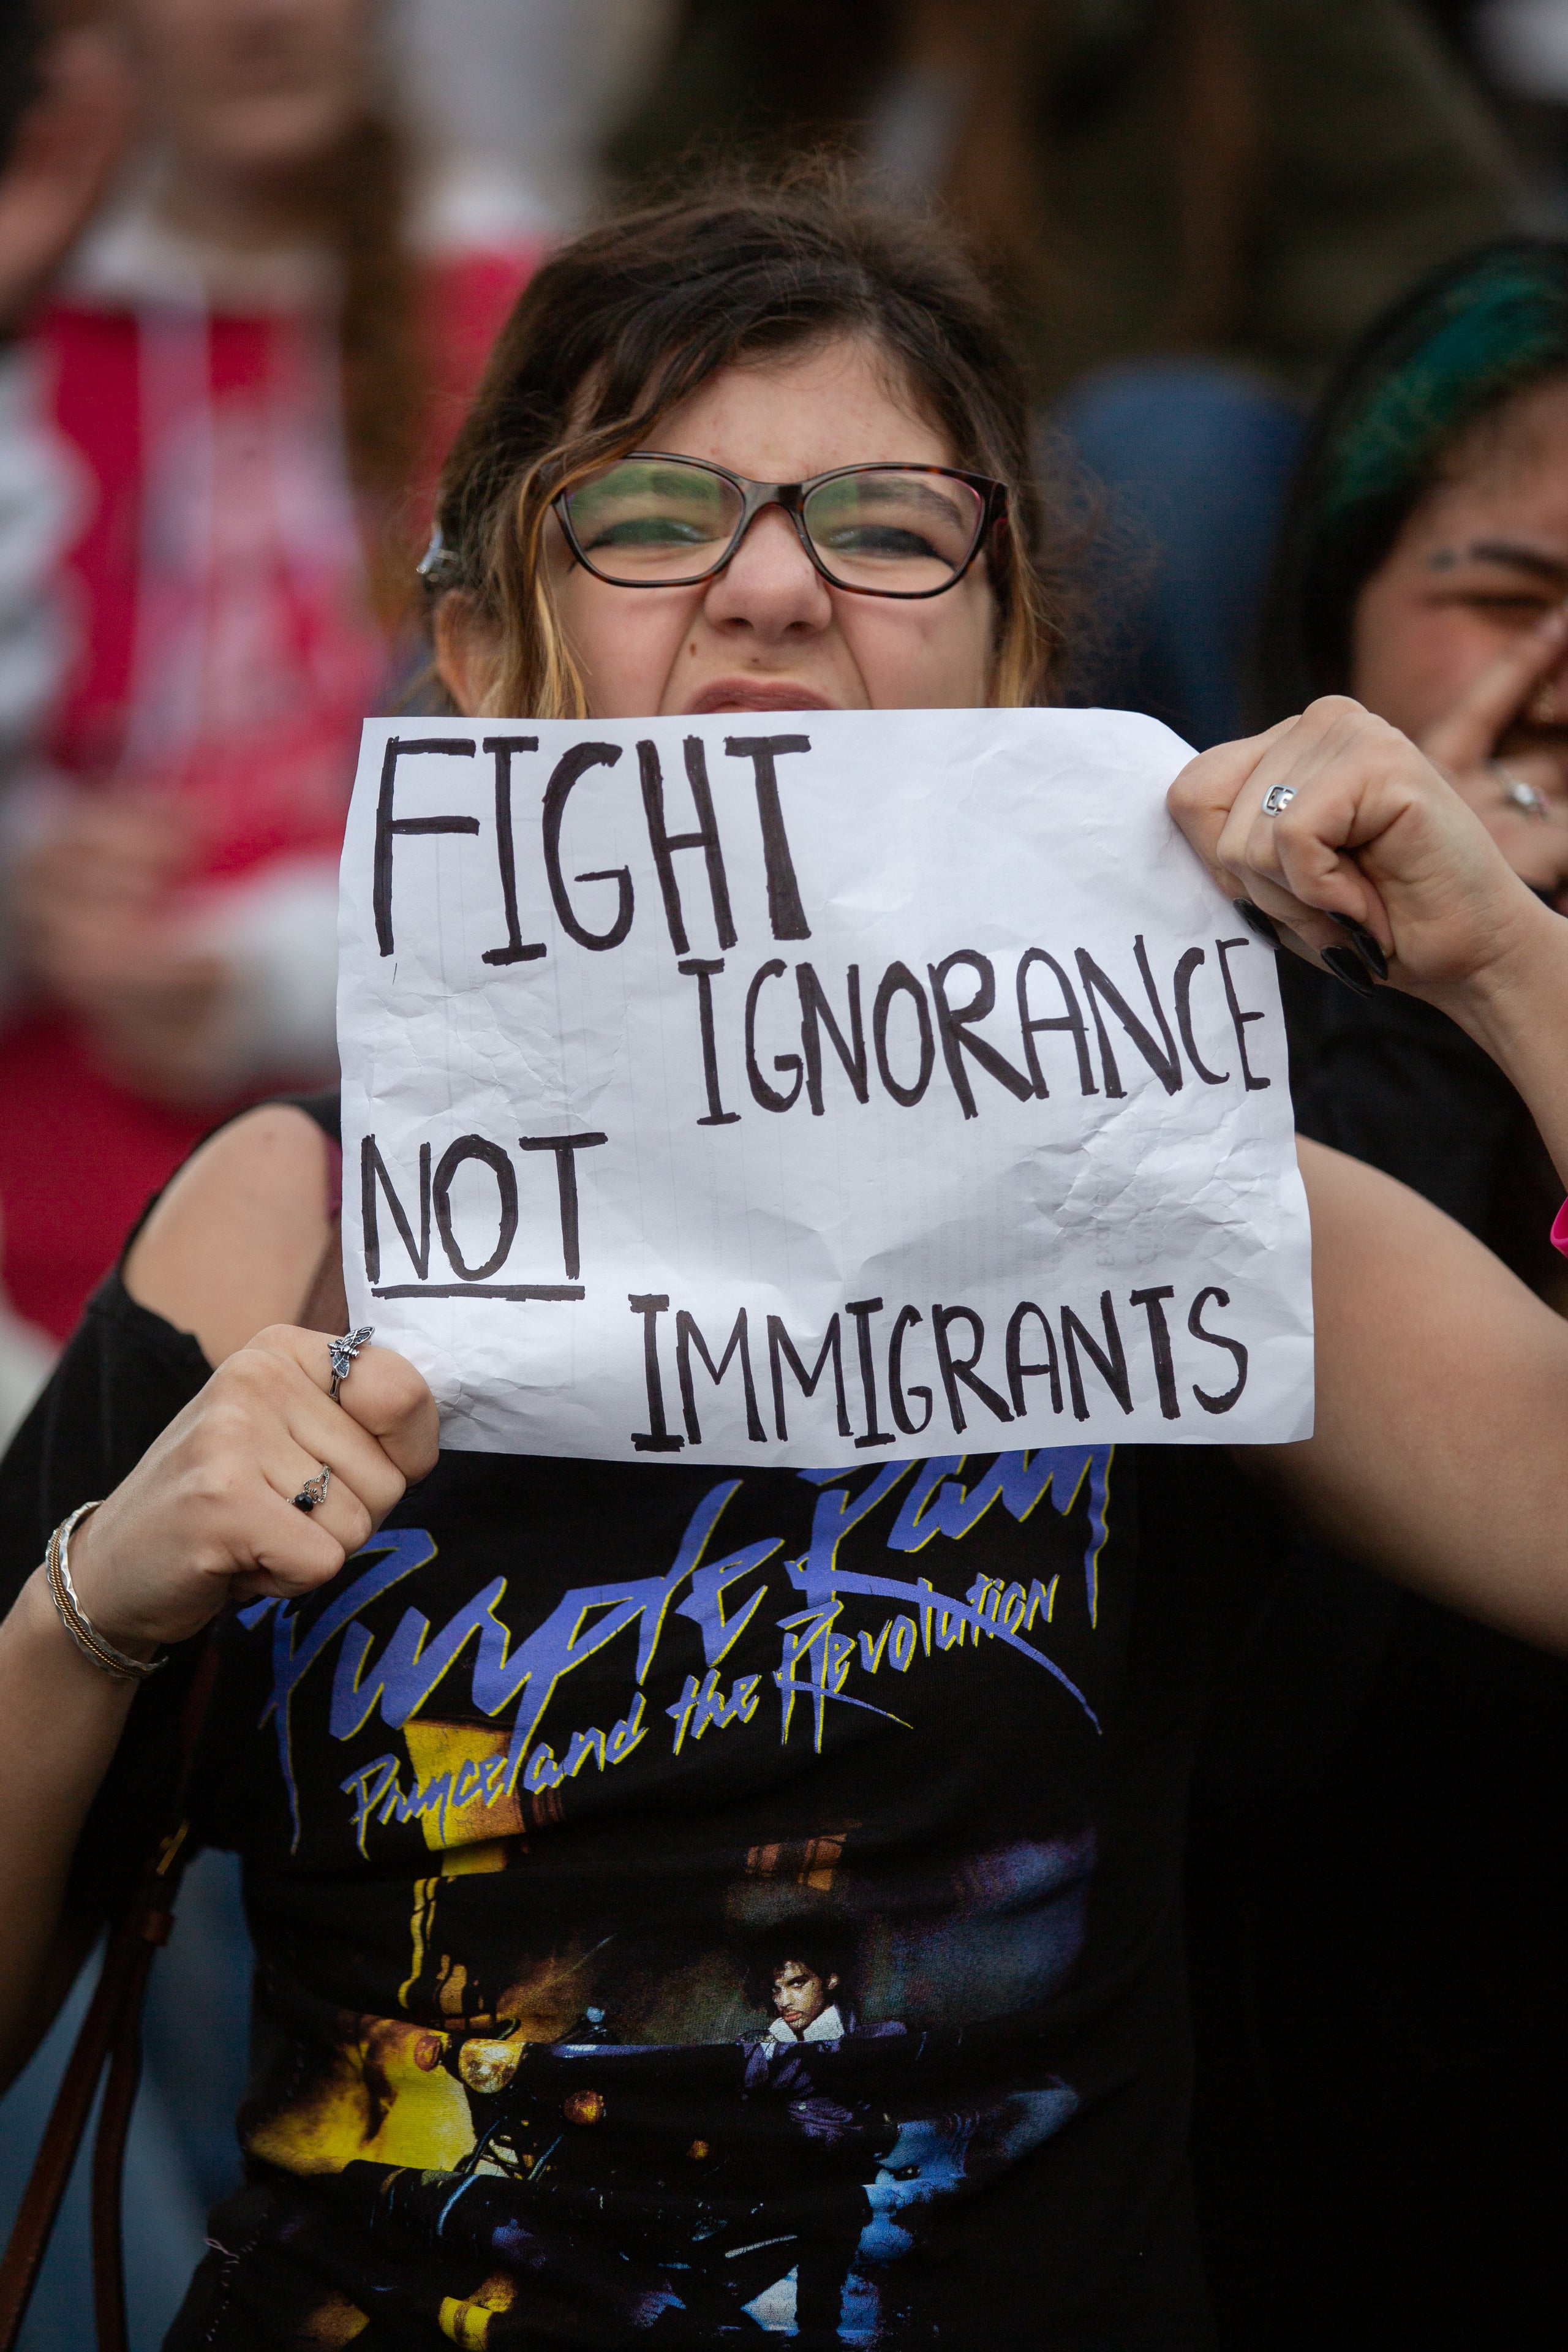 FIGHT
IGNORANCE
NOT
IMMIGRANTS
Purple Rain
Prince and the Revolution